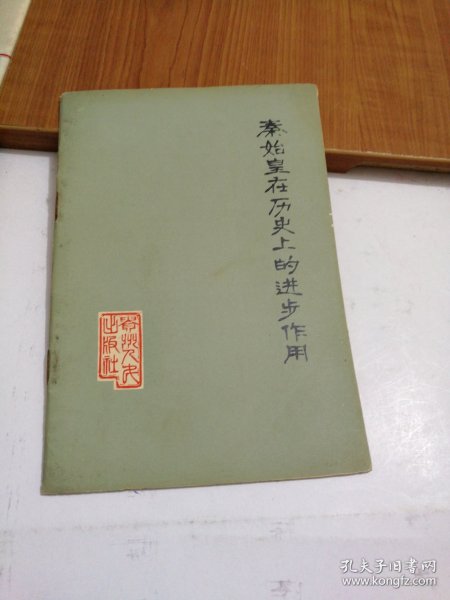 秦始皇在历史上的进步作用
贵州人民
出版社
孔夫子旧书网
www.kongfz.com